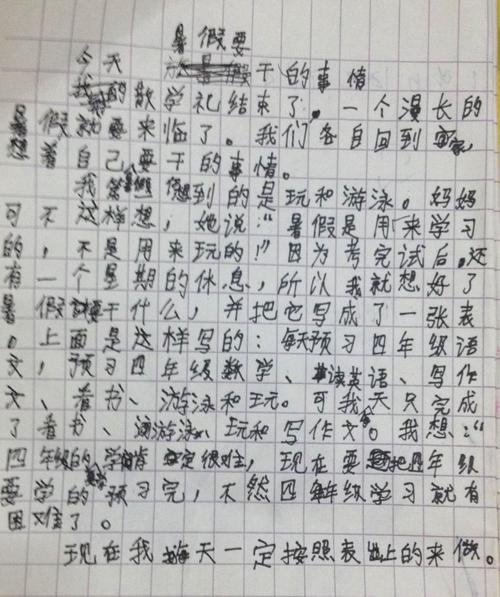 暑假要
今天干的事情
我们的散学礼结束了。一个漫长的
暑假就要来临了。我们各自回到家,
想着自己要干的事情。
我想到的是玩和游泳。妈妈
可不这样想,她说:“暑假是用来学习
的,不是用来玩的!”因为考完试后,还
有一个星期的休息,所以我就想好了
暑假要干什么,并把它写成了一张表
。上面是这样写的:每天预习四年级语
文,预习四年级数学、读英语、写作
文、看书、游泳和玩。可我今天只完成
了看书、游泳、玩和写作文。我想:“
四年级的学肯定很难,现在要把四年级
要学的预习完,不然四年级学习就有
困难了。
现在我每天一定按照表上的来做。